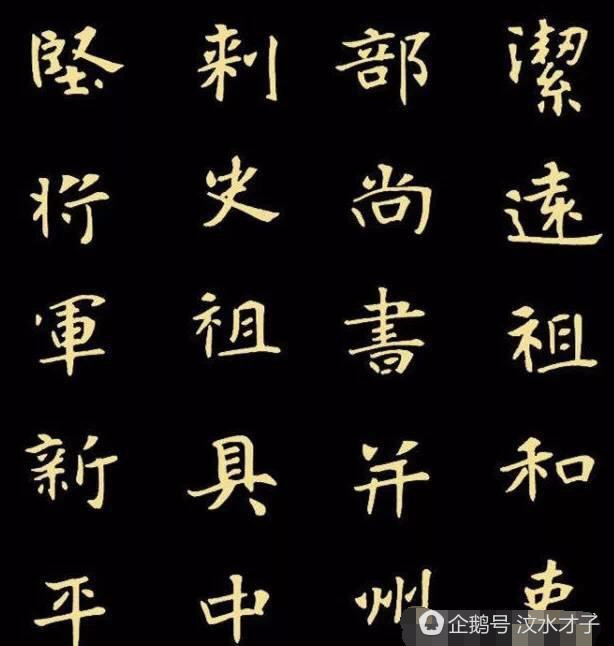 潔遠祖和吏
部尚書并州
刺史祖具中
堅將軍新平
企鹅号 汶水才子